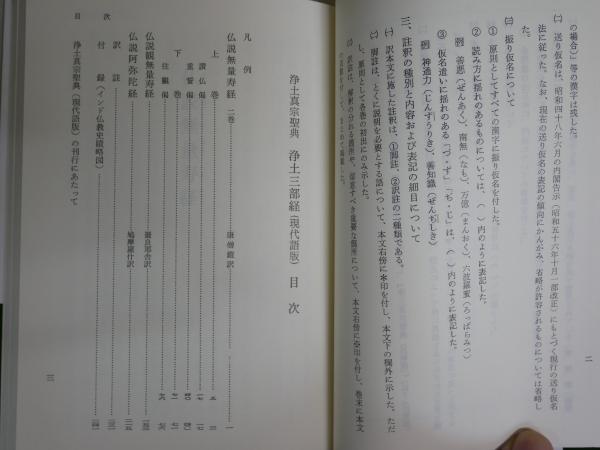 の場合に）等の漢字は残した。
㈡ 送り仮名は、昭和四十八年六月の内閣告示（昭和五十六年十月一部改正）にもとづく現行の送り仮名
法に従った。なお、現在の送り仮名の表記の傾向にかんがみ、省略が許容されるものについては省略し
た。
㈢ 振り仮名について
① 原則としてすべての漢字に振り仮名を付した。
② 読み方に揺れのあるものについては、（ ）内のように表記した。
例 善悪（ぜんあく）、南無（なも）、万億（まんおく）、六波羅蜜（ろっぱらみつ）
③ 仮名遣いに揺れのある「づ・ず」「ぢ・じ」は（ ）内のように表記した。
例 神通力（じんずうりき）、善知識（ぜんぢしき）
三、註釈の種別と内容および表記の細目について
㈠ 訳本文に施した註釈は、①脚註、②訳註の二種類である。
㈡ 脚註は、とくに説明を必要とする語について、本文右傍に＊印を付し、本文下の欄外に示した。ただ
し、原則として各巻の初出にのみ示した。
㈢ 訳註は、解釈の分れる箇所や、留意すべき重要な箇所について、本文右傍に※印を付し、巻末に本文
二
浄土真宗聖典 浄土三部経（現代語版） 目次
凡例
仏説無量寿経 二巻 康僧鎧訳 一
上巻 三
讃仏偈 一七
重誓偈
下巻
往覲偈
仏説観無量寿経 畺良耶舎訳
仏説阿弥陀経 鳩摩羅什訳
訳註
付録〈インド仏教史蹟略図〉
浄土真宗聖典（現代語版）の刊行にあたって
目次
三